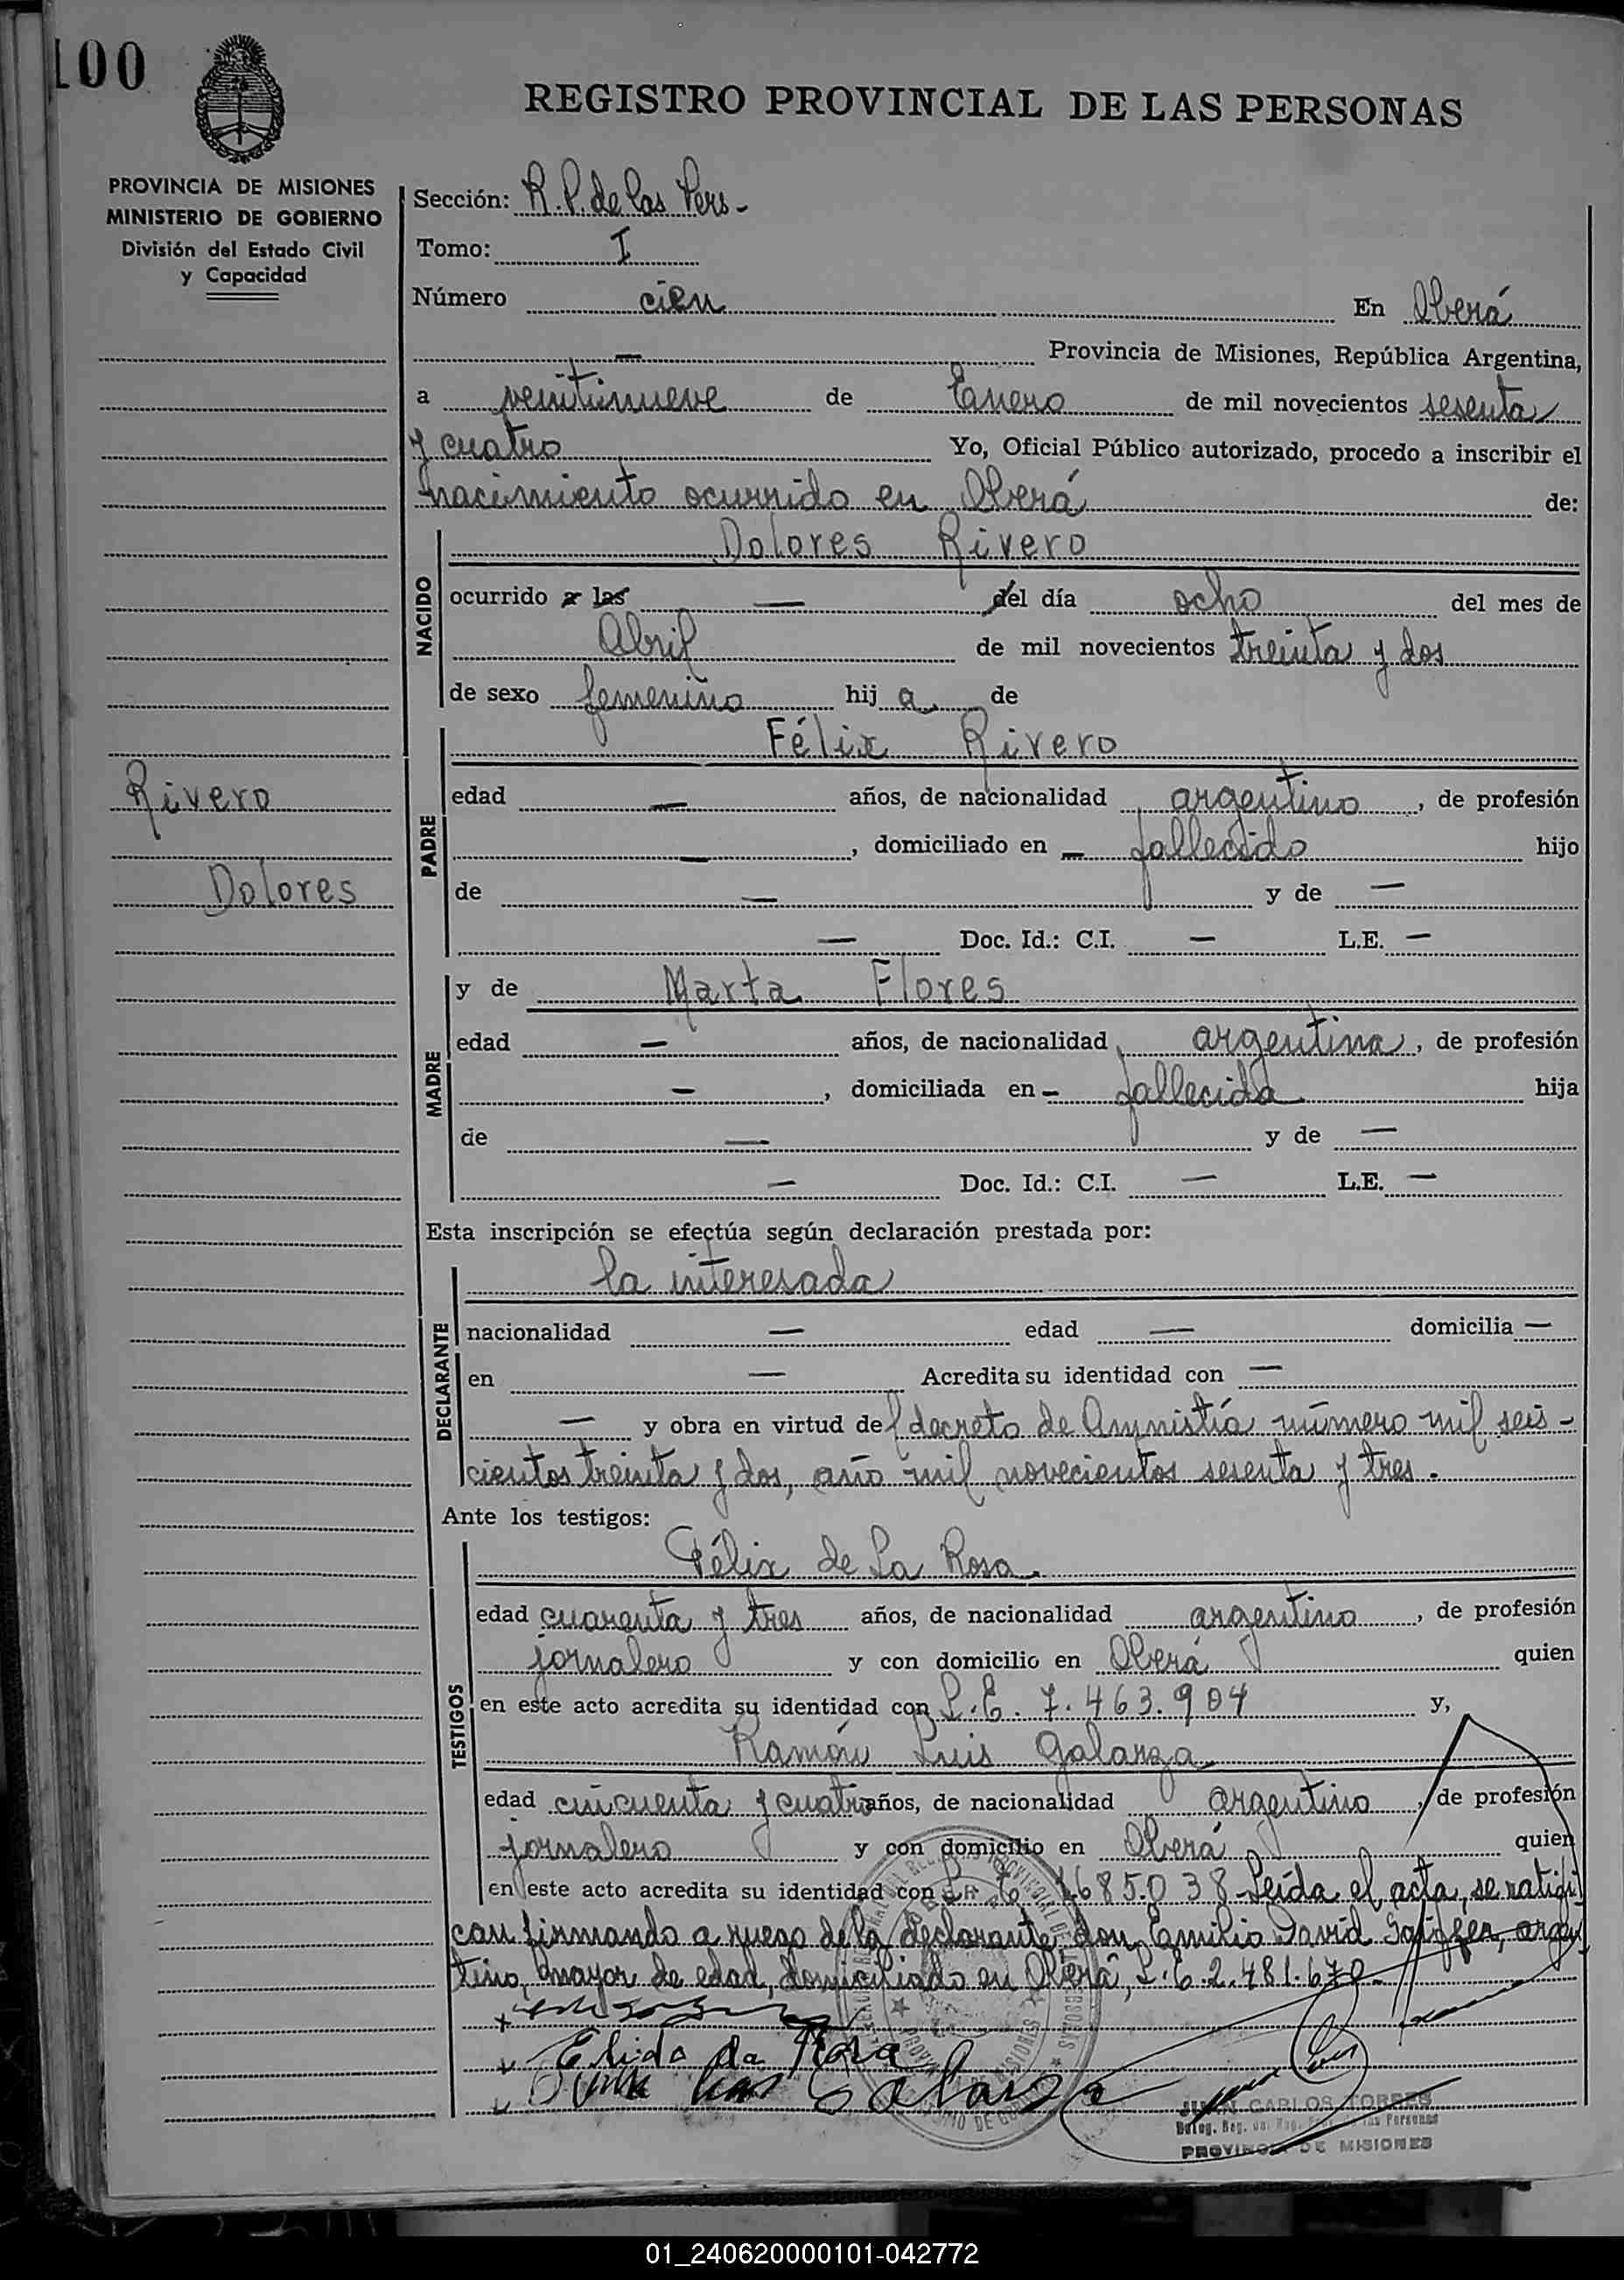 100
REGISTRO PROVINCIAL DE LAS PERSONAS
PROVINCIA DE MISIONES
MINISTERIO DE GOBIERNO
División del Estado Civil
y Capacidad
Sección: R.P. de las Pers-
Tomo: I
Número cien En Oberá
— Provincia de Misiones, República Argentina,
a veintinueve de Enero de mil novecientos sesenta
y cuatro Yo, Oficial Público autorizado, procedo a inscribir el
nacimiento ocurrido en Oberá de:
NACIDO
Dolores Rivero
ocurrido a las — del día ocho del mes de
Abril de mil novecientos treinta y dos
de sexo femenino hija de
PADRE
Félix Rivero
Rivero
edad — años, de nacionalidad argentino, de profesión
—, domiciliado en — fallecido hijo
Dolores
de — y de —
— Doc. Id.: C.I. — L.E. —
MADRE
y de Marta Flores
edad — años, de nacionalidad argentina, de profesión
—, domiciliada en — fallecida hija
de — y de —
— Doc. Id.: C.I. — L.E. —
Esta inscripción se efectúa según declaración prestada por:
DECLARANTE
la interesada
nacionalidad — edad — domicilia —
en — Acredita su identidad con —
— y obra en virtud del decreto de Amnistía número mil seis-
cientos treinta y dos, año mil novecientos sesenta y tres.
Ante los testigos:
TESTIGOS
Félix de La Rosa
edad cuarenta y tres años, de nacionalidad argentino, de profesión
jornalero y con domicilio en Oberá quien
en este acto acredita su identidad con L.E. 7.463.904 y,
Ramón Luis Galarza
edad cincuenta y cuatro años, de nacionalidad argentino, de profesión
jornalero y con domicilio en Oberá quien
en este acto acredita su identidad con L.E. 1.685.038 Leída el acta, se ratifi
can firmando a ruego de la declarante, don Emilio David argen
tino, mayor de edad, domiciliado en Oberá, L.E. 2.481.670.
Galarza
JUAN CARLOS TORRES
Deleg. Reg. las Personas
PROVINCIA DE MISIONES
01_240620000101-042772